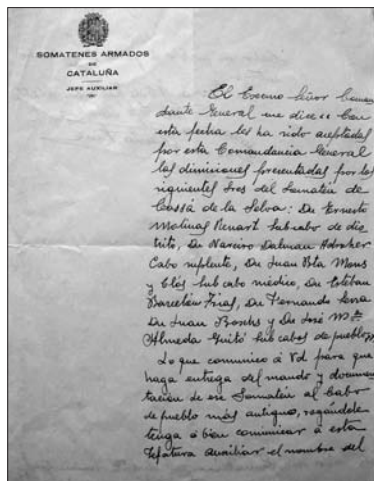 SOMATENES ARMADOS
DE
CATALUÑA
JEFE AUXILIAR
El Excmo Señor Coman
dante General me dice: Con
esta fecha les ha sido aceptadas
por esta Comandancia General
las dimisiones presentadas por los
siguientes Sres del Somatén de
Cassá de la Selva: Dn Ernesto
Molinas Renart sub cabo de dis
trito, Dn Narciso Dalmau
Cabo suplente, Dn Juan Bta Mons
y sub cabo médico, Dn Esteban
Barceló Frias, Dn Fernando Serra
Dn Juan Boschs y Dn José Mª
Almeda Guitó sub cabos de pueblo
Lo que comunico á Vd para que
haga entrega del mando y documen
tación de ese Somatén al Cabo
de pueblo más antiguo, rogándole
tenga á bien comunicar á esta
Jefatura Auxiliar el nombre del